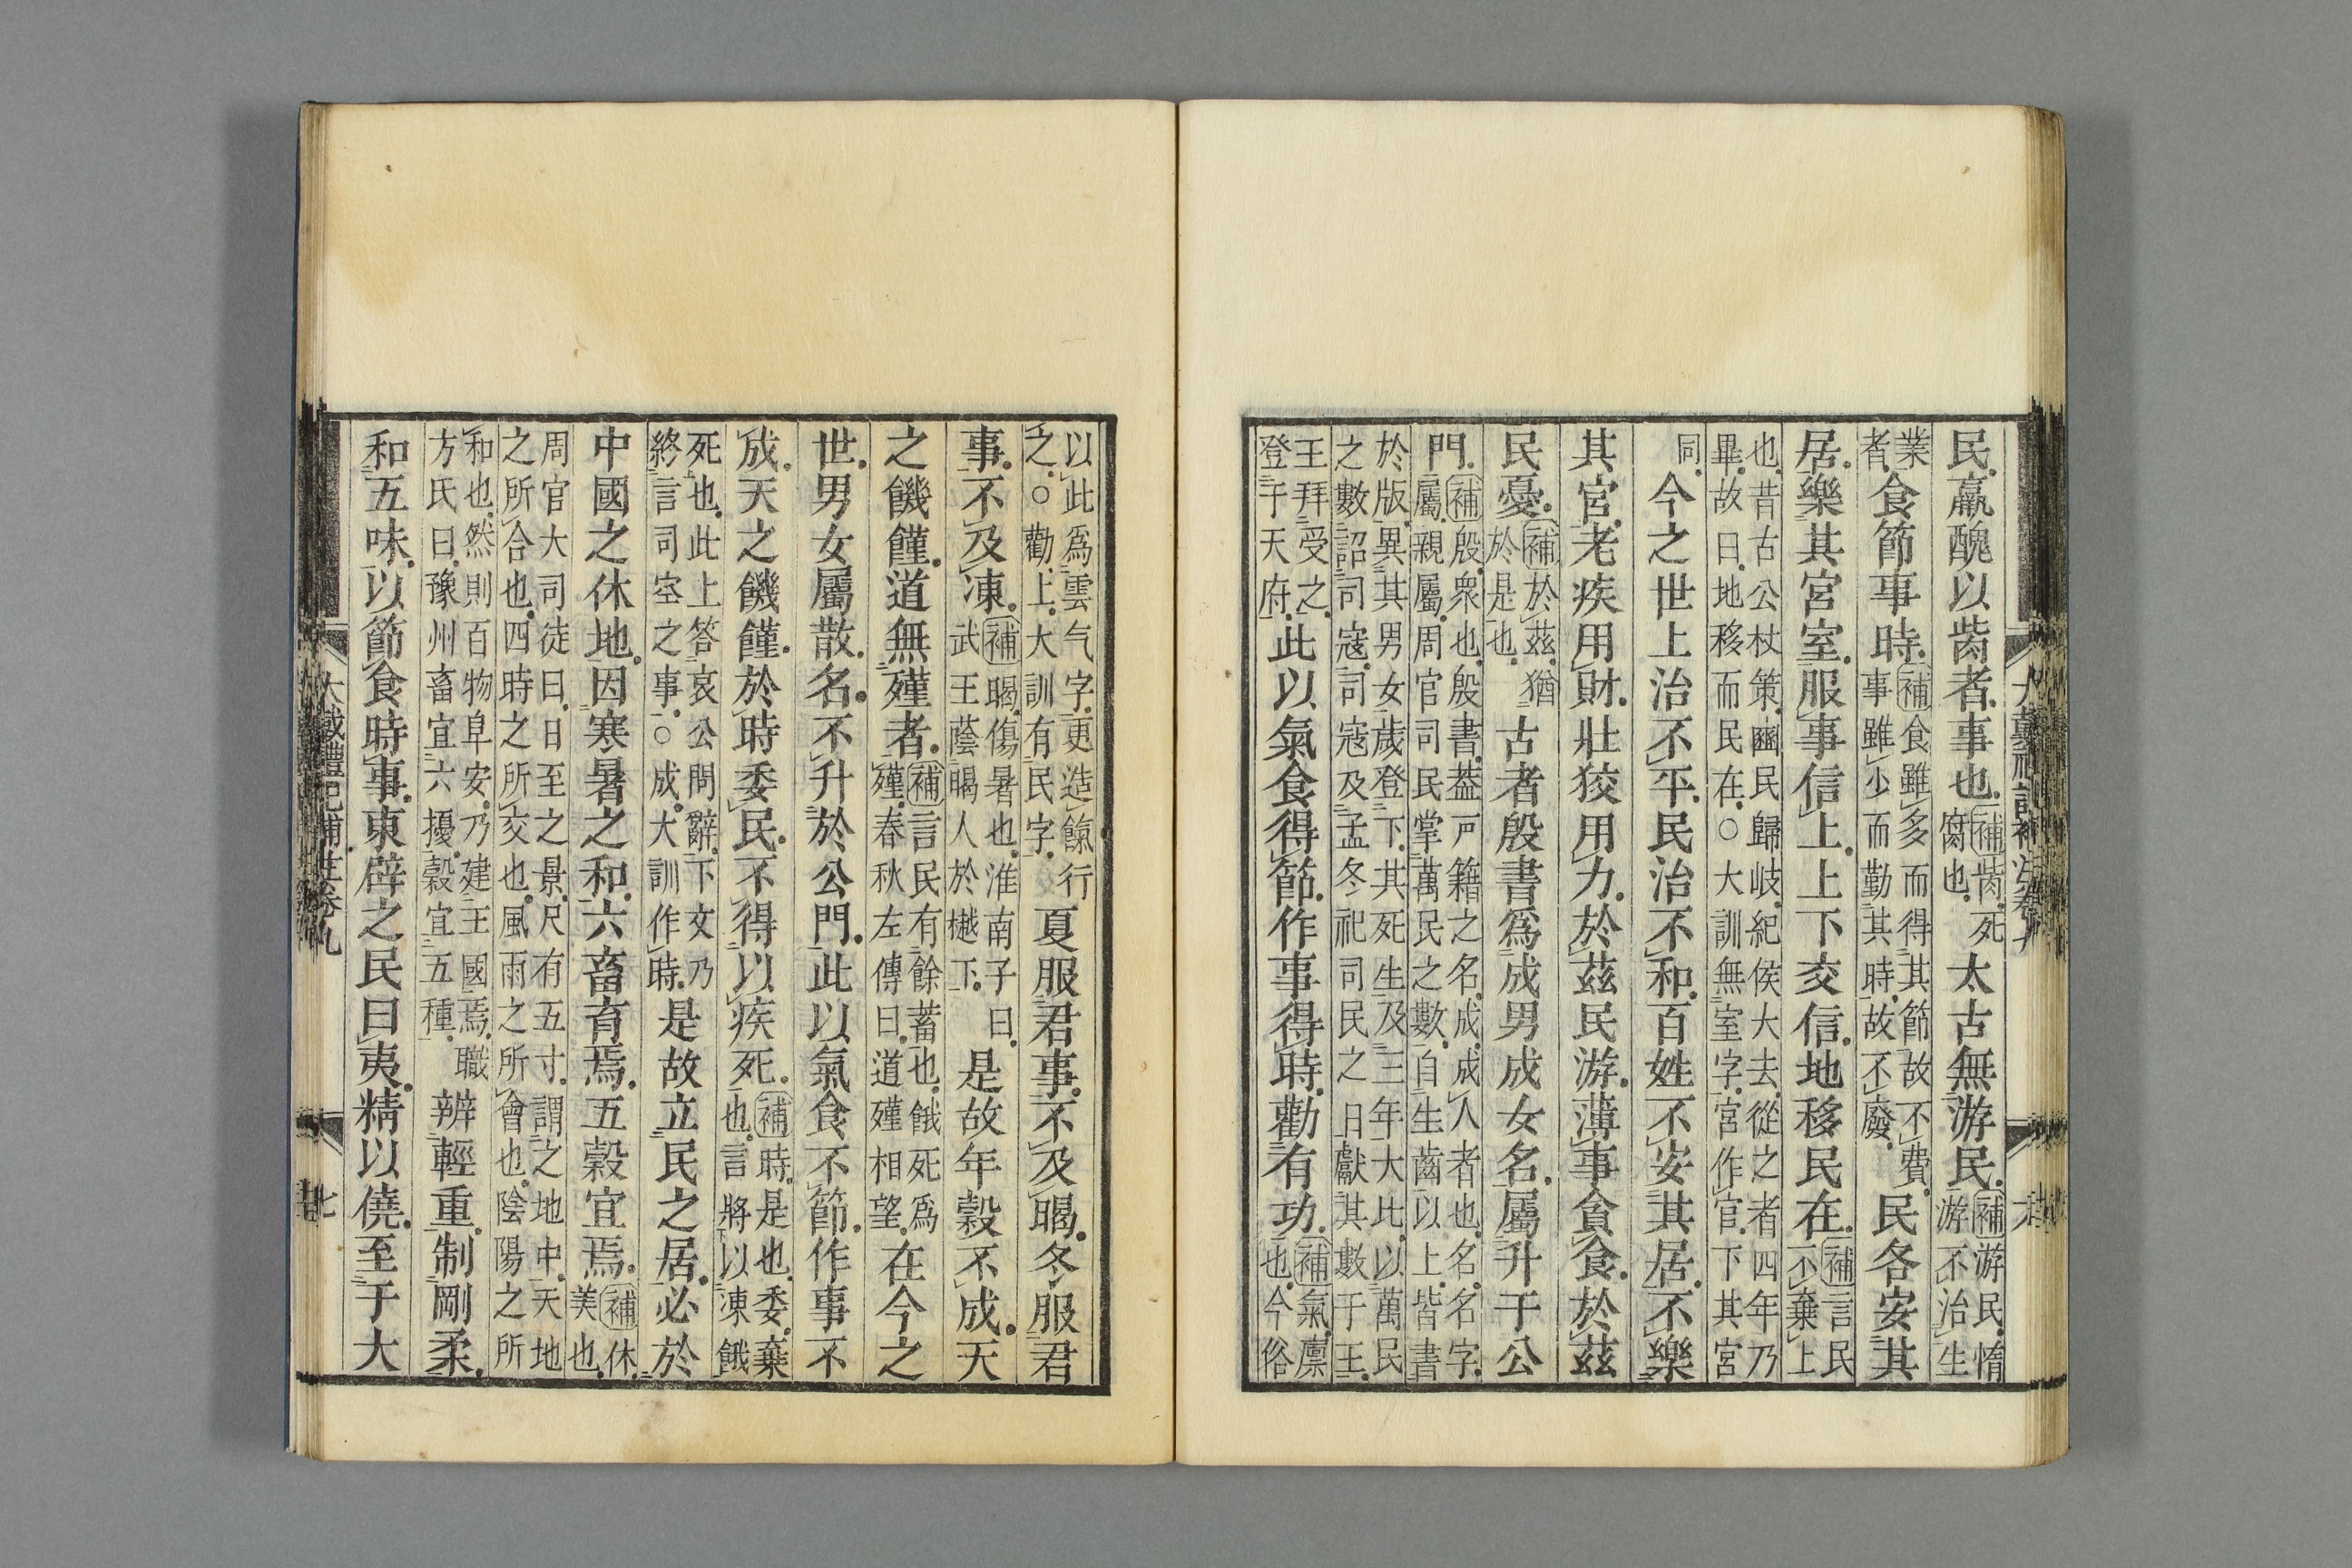 民羸醜以胔者事也補胔死
腐也太古無游民補游民惰
游不治生
業食節事時補食雖多而得其節故不費
者事雖少而勤其時故不廢民各安其
居樂其宮室服事信上上下交信地移民在補言民
不棄上
也昔古公杖策豳民歸岐紀侯大去從之者四年乃
畢故曰地移而民在○大訓無室字宮作官下其宮
同今之世上治不平民治不和百姓不安其居不樂
其官老疾用財壯狡用力於茲民游薄事貪食於茲
民憂補於茲猶
於是也古者殷書爲成男成女名屬升于公
門補殷衆也殷書葢戸籍之名成成人者也名名字
屬親屬周官司民掌萬民之數自生齒以上皆書
於版異其男女歲登下其死生及三年大比以萬民
之數詔司寇司寇及孟冬祀司民之日獻其數于王
王拜受之
登于天府此以氣食得節作事得時勸有功補氣廪
也今俗
以此爲雲气字更造餼行
之○勸上大訓有民字夏服君事不及暍冬服君
事不及凍補暍傷暑也淮南子曰
武王蔭暍人於樾下是故年穀不成天
之饑饉道無殣者補言民有餘蓄也餓死爲
殣春秋左傳曰道殣相望在今之
世男女屬散名不升於公門此以氣食不節作事不
成天之饑饉於時委民不得以疾死補時是也委棄
也言將以凍餓
死也此上答哀公問辭下文乃
終言司空之事○成大訓作時是故立民之居必於
中國之休地因寒暑之和六畜育焉五穀宜焉補休
美也
周官大司徒曰日至之景尺有五寸謂之地中天地
之所合也四時之所交也風雨之所會也陰陽之所
和也然則百物阜安乃建王國焉職
方氏曰豫州畜宜六擾穀宜五種辨輕重制剛柔
和五味以節食時事東辟之民曰夷精以僥至于大
大戴禮記補注卷九
七